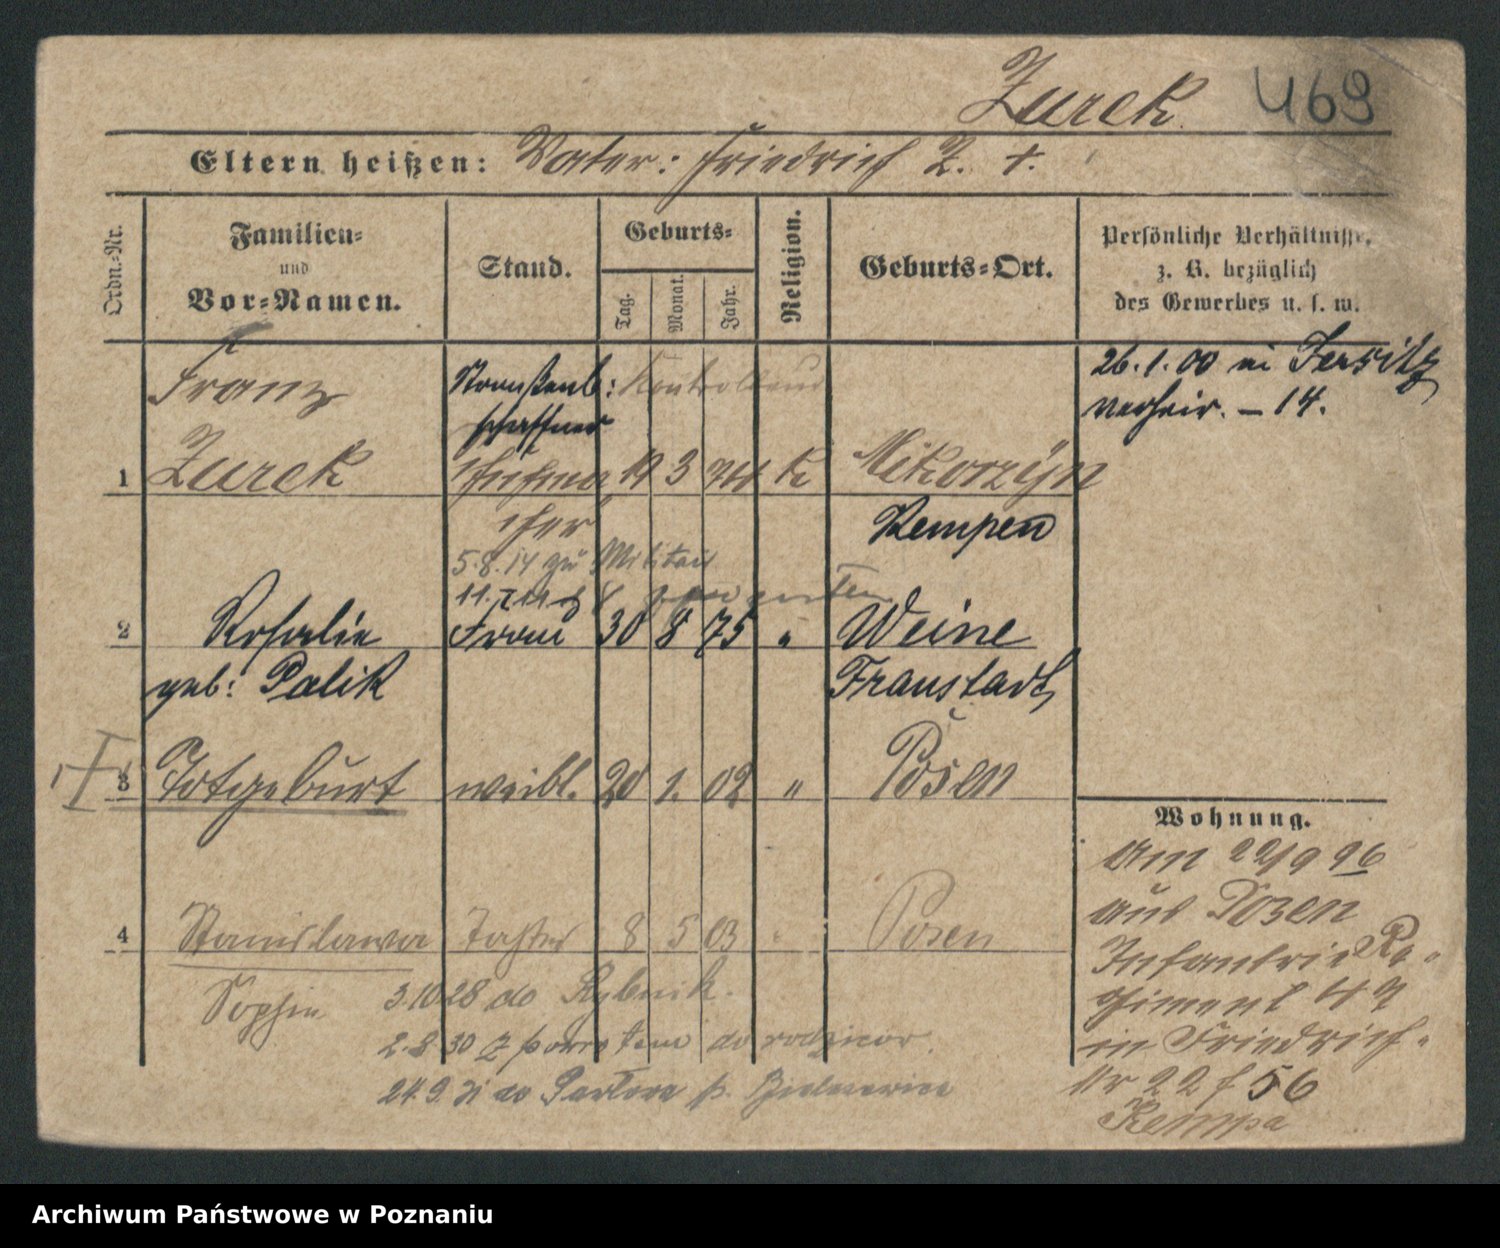 Zurek. 469
Eltern heißen: Vater: Friedrich Z. †.
Ordn.-Nr.
Familien-
und
Vor-Namen.
Stand.
Geburts-
Tag.
Monat.
Jahr.
Religion.
Geburts-Ort.
Persönliche Verhältnisse,
z. B. bezüglich
des Gewerbes u. s. w.
Franz
Straßenb:
schaffner
1 Zurek Schuhma 19 3 74 k Mikorzyn
cher
Kempen
26.1.00 in Jersitz
verheir. – 14.
5.8.14 zu Militair
2 Rosalie Frau 30 8 75 " Weine
geb: Palik
Fraustadt
3 Totgeburt weibl. 20 1. 02 " Posen
4 Stanislawa Tochter 8 5 03 " Posen
Sophie
3.10 28 do Rybnik.
2.8 30 z powrotem do rodziców.
24.9.31 do
Wohnung.
Am 22/9 96
aus Posen
Infantrie Re-
giment 47
in Friedrich-
Nr 22 f 56
Kempa
Archiwum Państwowe w Poznaniu